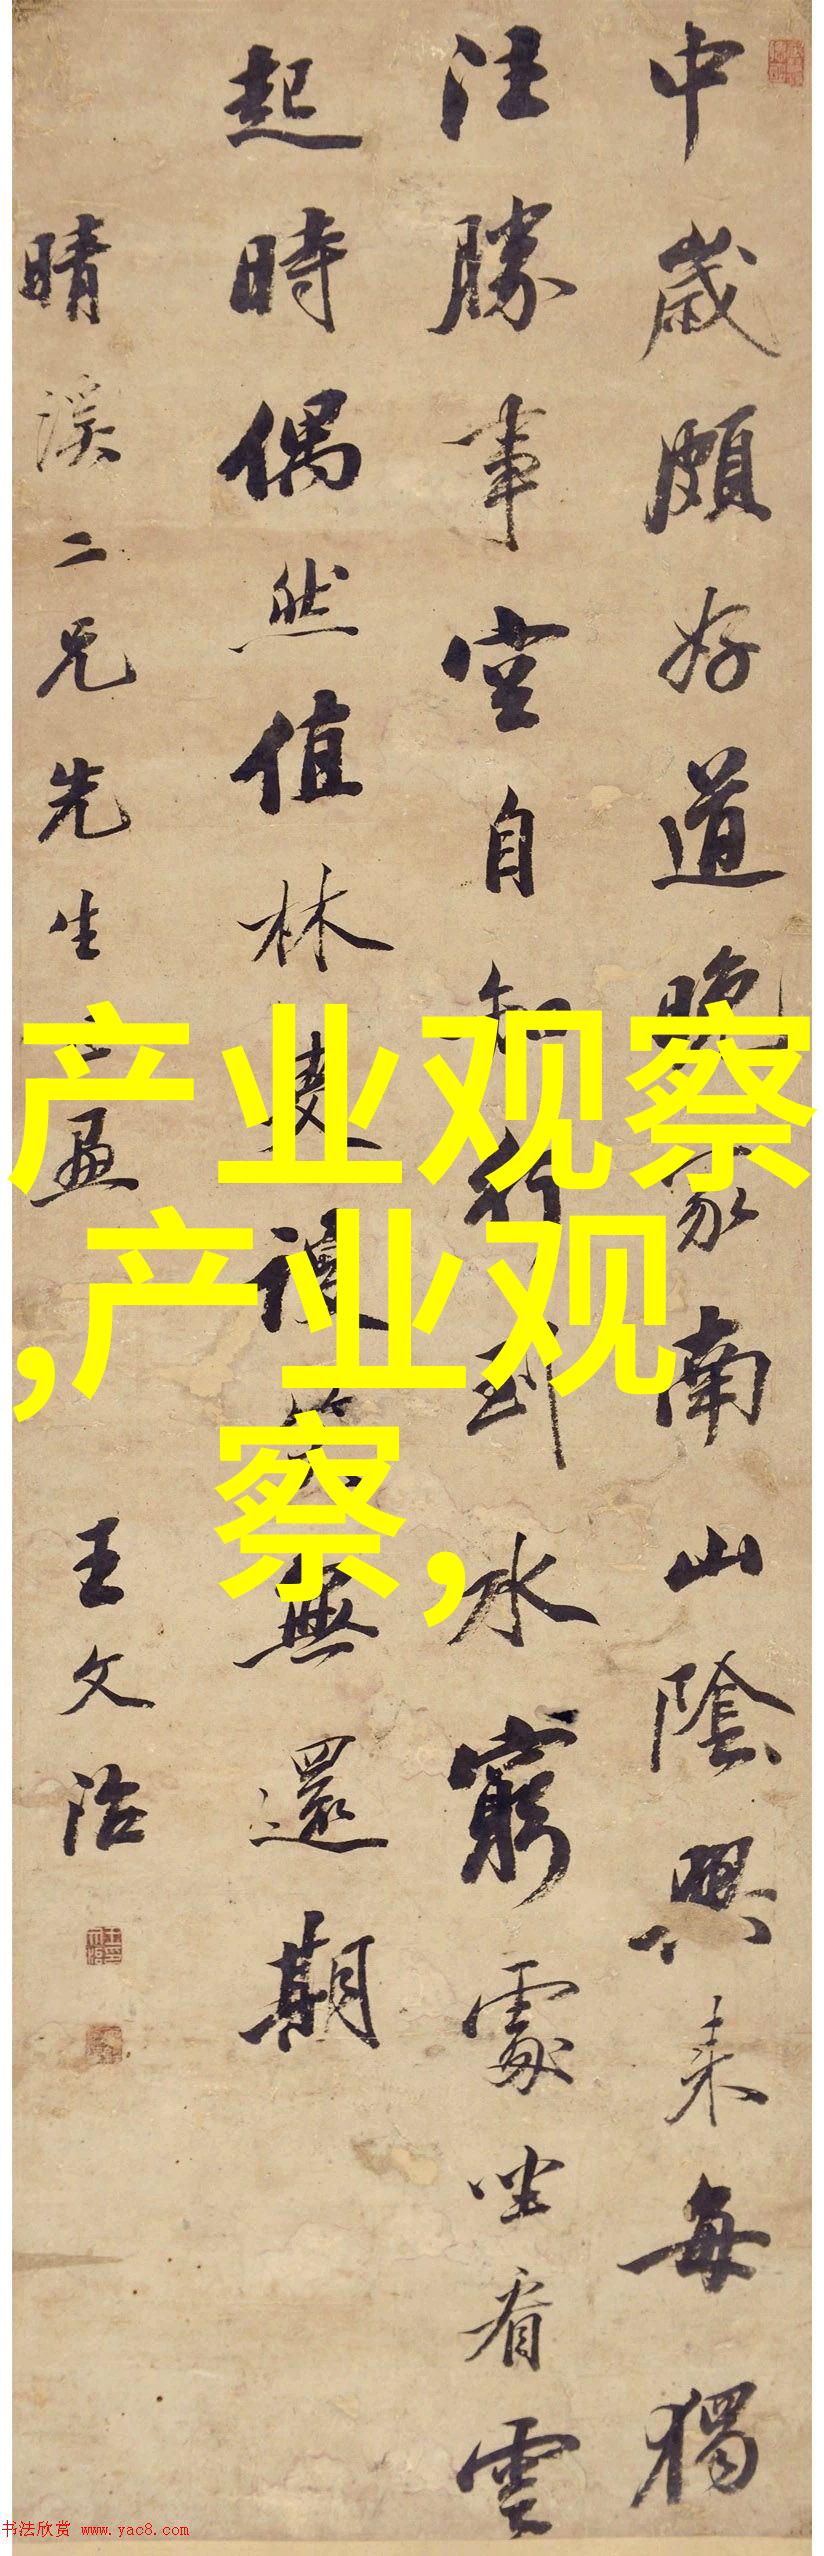 中歲頗好道晚家南山陰興来每獨
往勝事空自知行到水窮處坐看雲
起時偶然值林叟談笑無還期
晴溪二兄先生
王文治
产业观察
,产业观
察,
书法欣赏 www.yac8.com